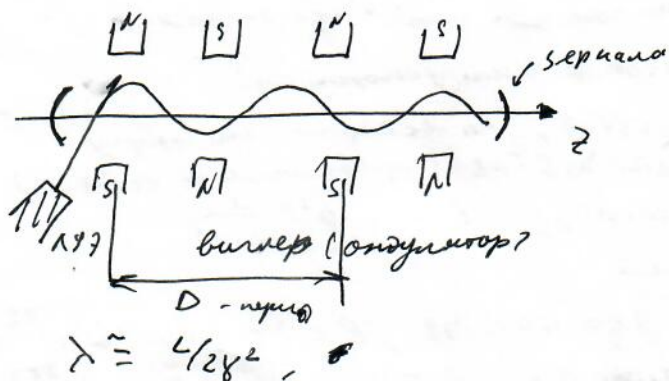 N S N S
зеркала
z
S N S N
ЛУЭ
вигглер (ондулятор)
D - период
λ ≅ L/2γ²,